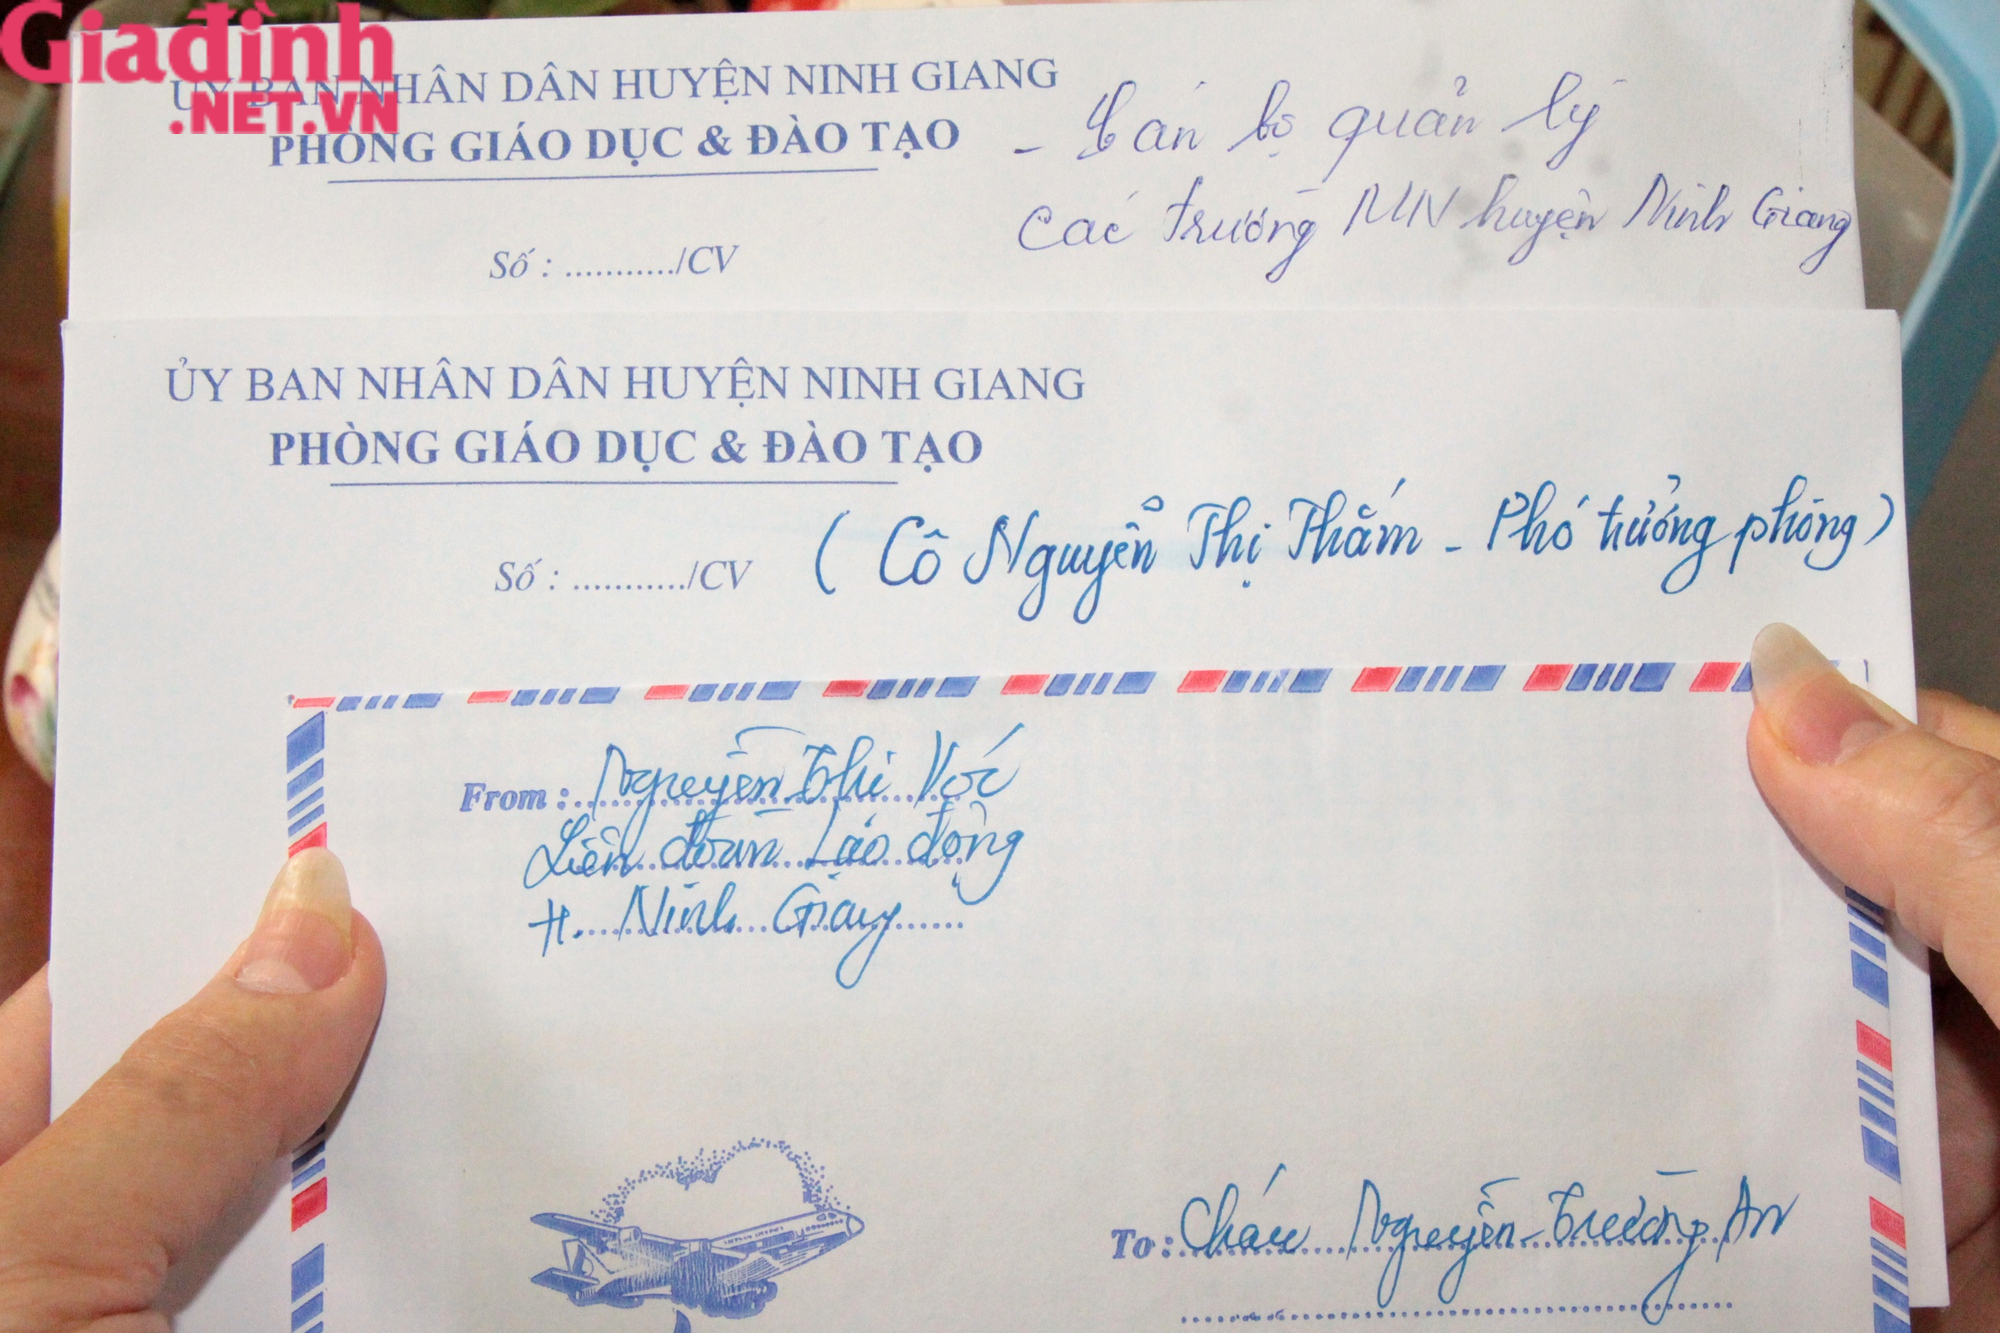 Giađình
.NET.VN
ỦY BAN NHÂN DÂN HUYỆN NINH GIANG
PHÒNG GIÁO DỤC & ĐÀO TẠO
Số : .........../CV
- Cán bộ quản lý
các trường MN huyện Ninh Giang
ỦY BAN NHÂN DÂN HUYỆN NINH GIANG
PHÒNG GIÁO DỤC & ĐÀO TẠO
Số : .........../CV
( Cô Nguyễn Thị Thắm - Phó trưởng phòng )
From : Nguyễn Thị Vóc
Liên đoàn Lao động
H. Ninh Giang
To : Cháu Nguyễn Trường An